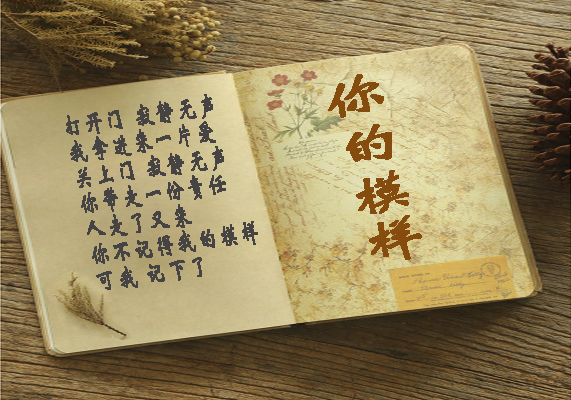 打开门 寂静无声
我拿进来一片爱
关上门 寂静无声
你带走一份责任
人走了又来
你不记得我的模样
可我记下了
你的模样